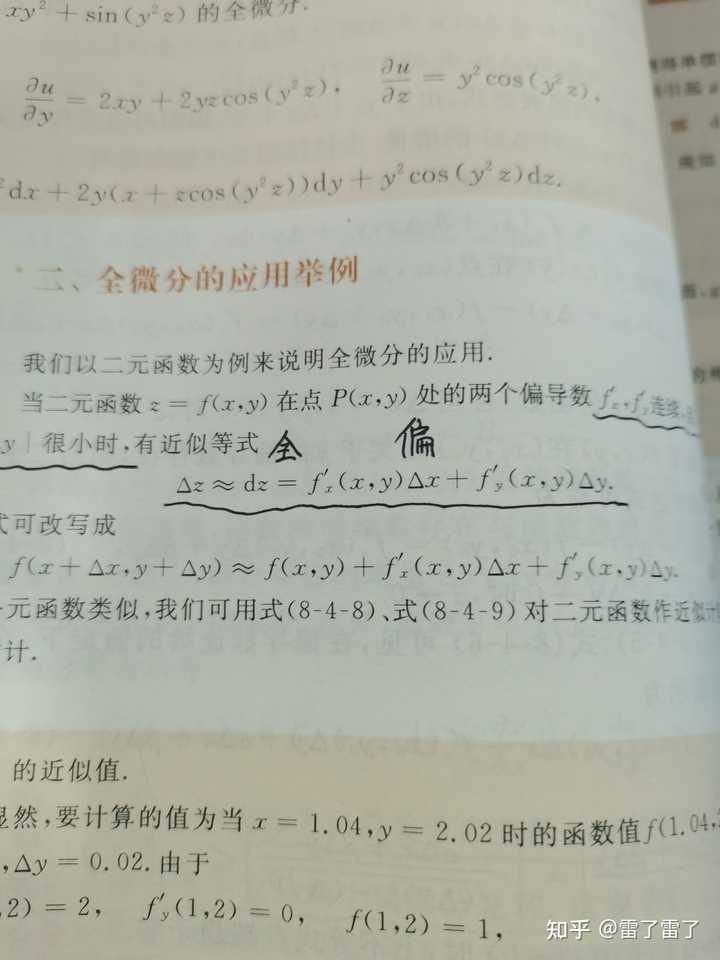 xy² + sin(y²z) 的全微分.
∂u/∂y = 2xy + 2yzcos(y²z), ∂u/∂z = y²cos(y²z),
²dx + 2y(x + zcos(y²z))dy + y²cos(y²z)dz.
*二、全微分的应用举例
我们以二元函数为例来说明全微分的应用.
当二元函数 z = f(x,y) 在点 P(x,y) 处的两个偏导数 f′ₓ,f′ᵧ连续,
y | 很小时,有近似等式 全 偏
Δz ≈ dz = f′ₓ(x,y)Δx + f′ᵧ(x,y)Δy.
式可改写成
f(x + Δx,y + Δy) ≈ f(x,y) + f′ₓ(x,y)Δx + f′ᵧ(x,y)Δy.
一元函数类似,我们可用式(8-4-8)、式(8-4-9) 对二元函数作近似计
计.
的近似值.
显然,要计算的值为当 x = 1.04,y = 2.02 时的函数值f(1.04,
,Δy = 0.02.由于
,2) = 2, f′ᵧ(1,2) = 0, f(1,2) = 1,
知乎 @雷了雷了